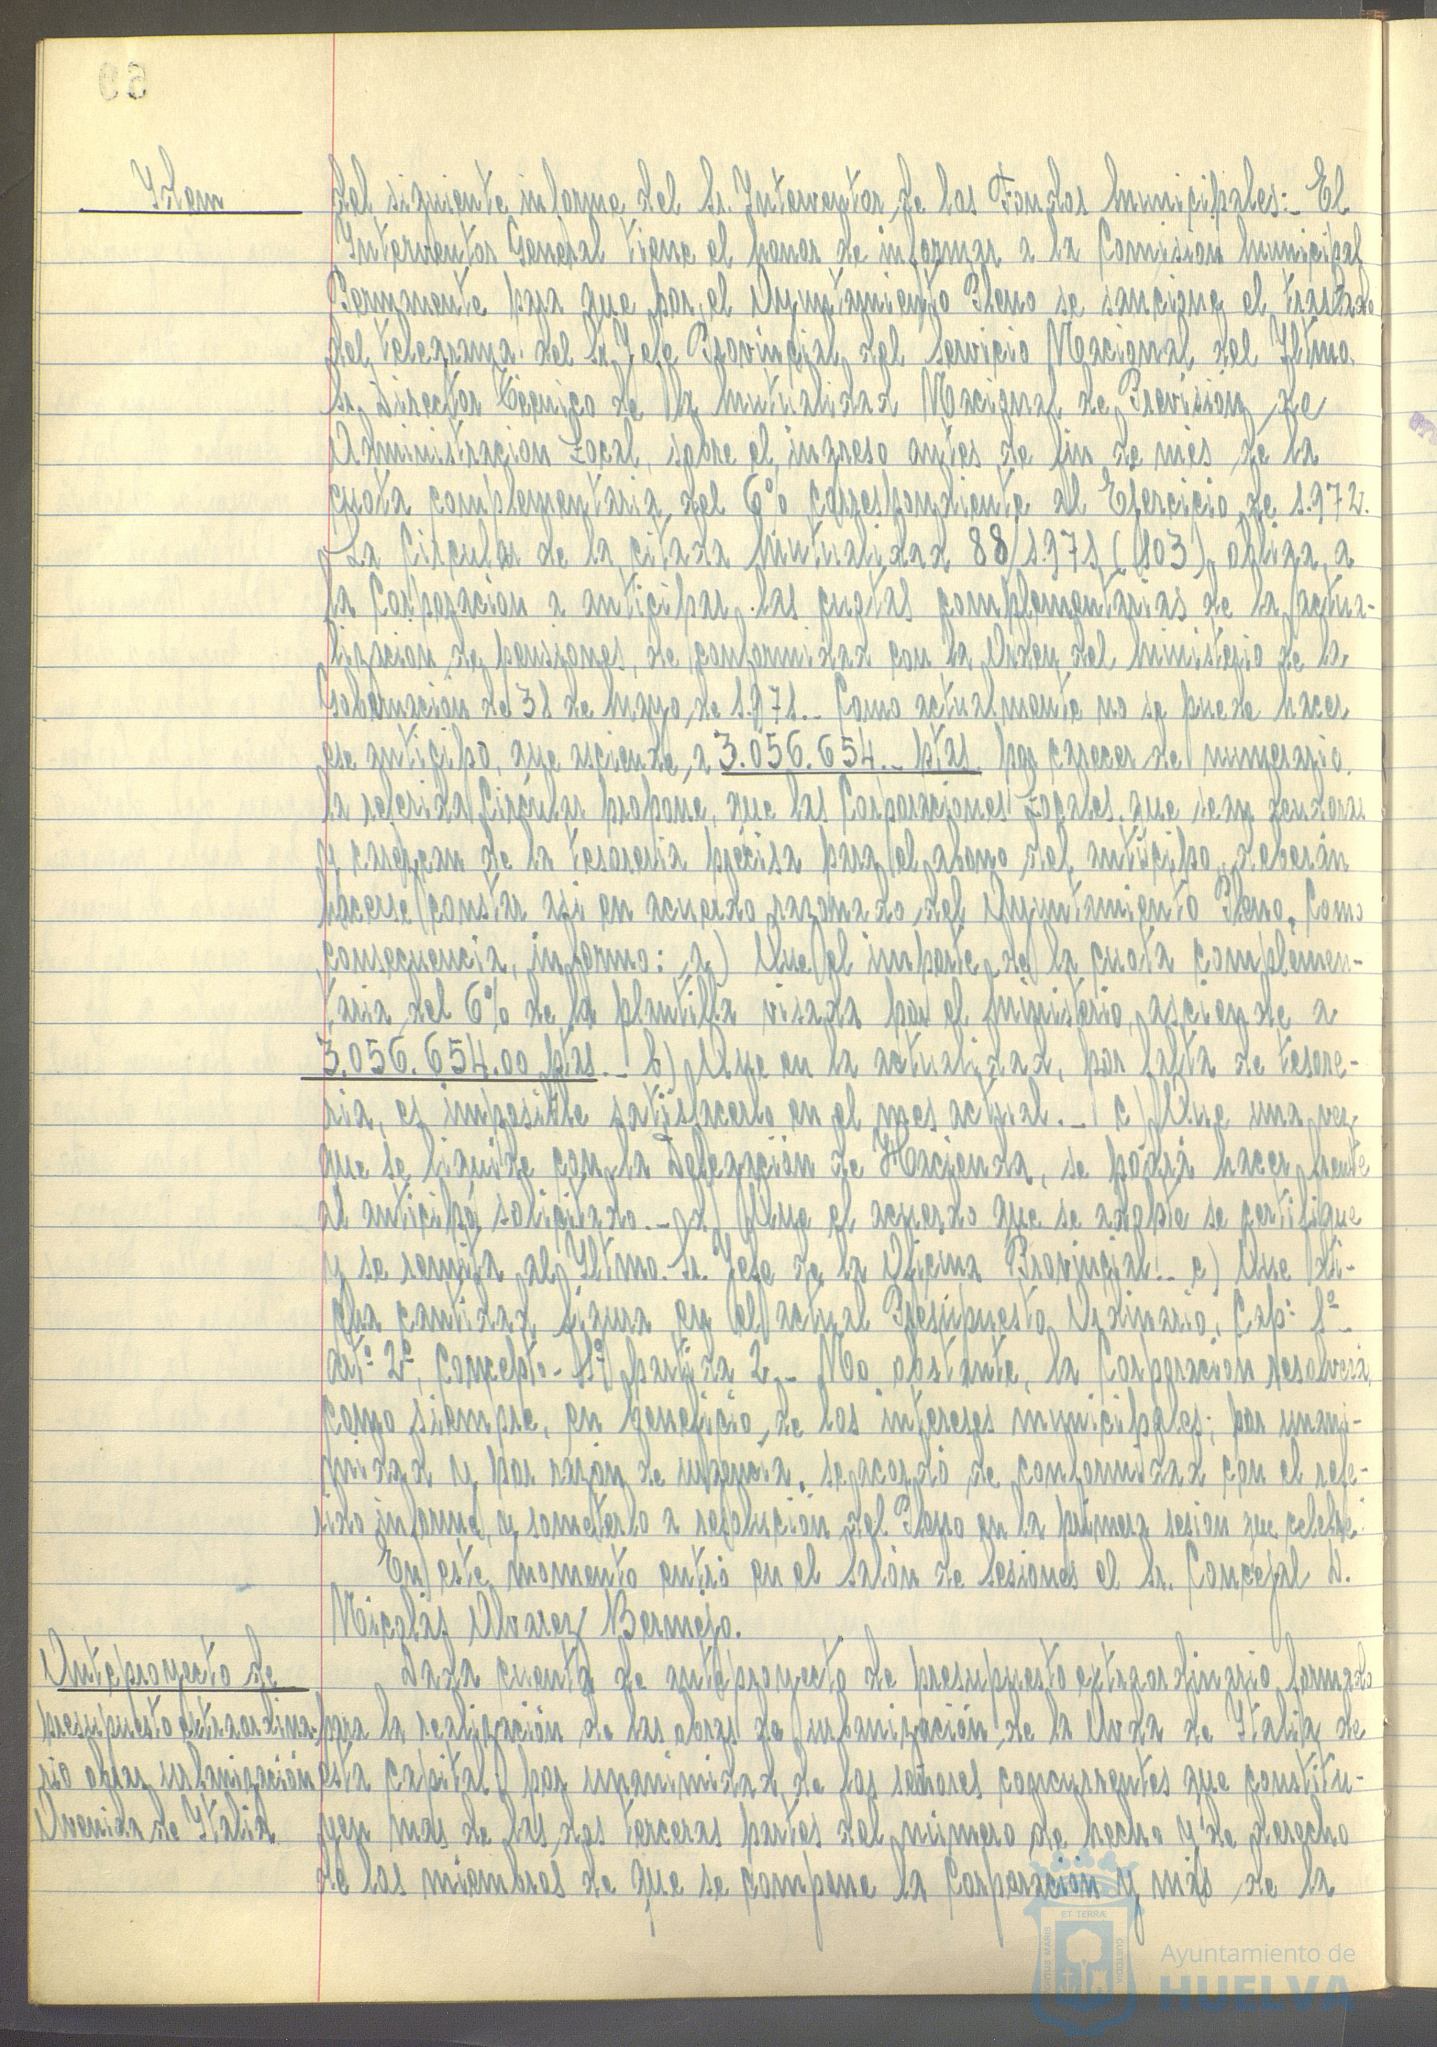 Item
del siguiente informe del Sr. Interventor de los Fondos Municipales:- El
Interventor General tiene el honor de informar a la Comisión Municipal
Permanente para que por el Ayuntamiento Pleno se sancione el traslado
del telegrama del Sr. Jefe Provincial del Servicio Nacional del Iltmo.
Sr. Director Técnico de la Mutualidad Nacional de Previsión de
Administración Local, sobre el ingreso antes de fin de mes de la
cuota complementaria del 6% correspondiente al Ejercicio de 1.972.
La Circular de la citada Mutualidad 88/1.971 (103), obliga a
la Corporación a anticipar las cuotas complementarias de la actua-
lización de pensiones, de conformidad con la Orden del Ministerio de la
Gobernación de 31 de Mayo de 1.971.- Como actualmente no se puede hacer
ese anticipo, que asciende a 3.056.654.- ptas. por carecer de numerario.
la referida Circular propone, que las Corporaciones Locales que sean deudoras
y carezcan de la tesorería precisa para el abono del anticipo, deberán
hacerse constar así en acuerdo razonado del Ayuntamiento Pleno. Como
consecuencia, informo: a) Que el importe de la cuota complemen-
taria del 6% de la plantilla visada por el Ministerio, asciende a
3.056.654.00 ptas.- b) Que en la actualidad, por falta de tesore-
ria, es imposible satisfacerlo en el mes actual.- c) Que una vez
que se liquide con la Delegación de Hacienda, se podrá hacer frente
al anticipo solicitado.- d) Que el acuerdo que se adopte se certifique
y se remita al Iltmo. Sr. Jefe de la Oficina Provincial.- e) Que di-
cha cantidad figura en el actual Presupuesto Ordinario, Cap: 1º
artº 2º, Concepto- 1º partida 2.- No obstante, la Corporación resolverá,
como siempre, en beneficio de los intereses municipales; por unani-
midad y por razón de urgencia, se acordó de conformidad con el refe-
rido informe y someterlo a resolución del Pleno en la primera sesión que celebre.
En este momento entró en el Salón de Sesiones el Sr. Concejal D.
Nicolás Alvarez Bermejo.
Anteproyecto de
presupuesto extraordina-
rio obras urbanización
Avenida de Italia.
Dada cuenta de anteproyecto de presupuesto extraordinario formado
para la realización de las obras de urbanización de la Avda de Italia de
esta capital, por unanimidad de los señores concurrentes que constitu-
yen más de las dos terceras partes del número de hecho y de derecho
de los miembros de que se compone la Corporación y más de la
Ayuntamiento de
HUELVA